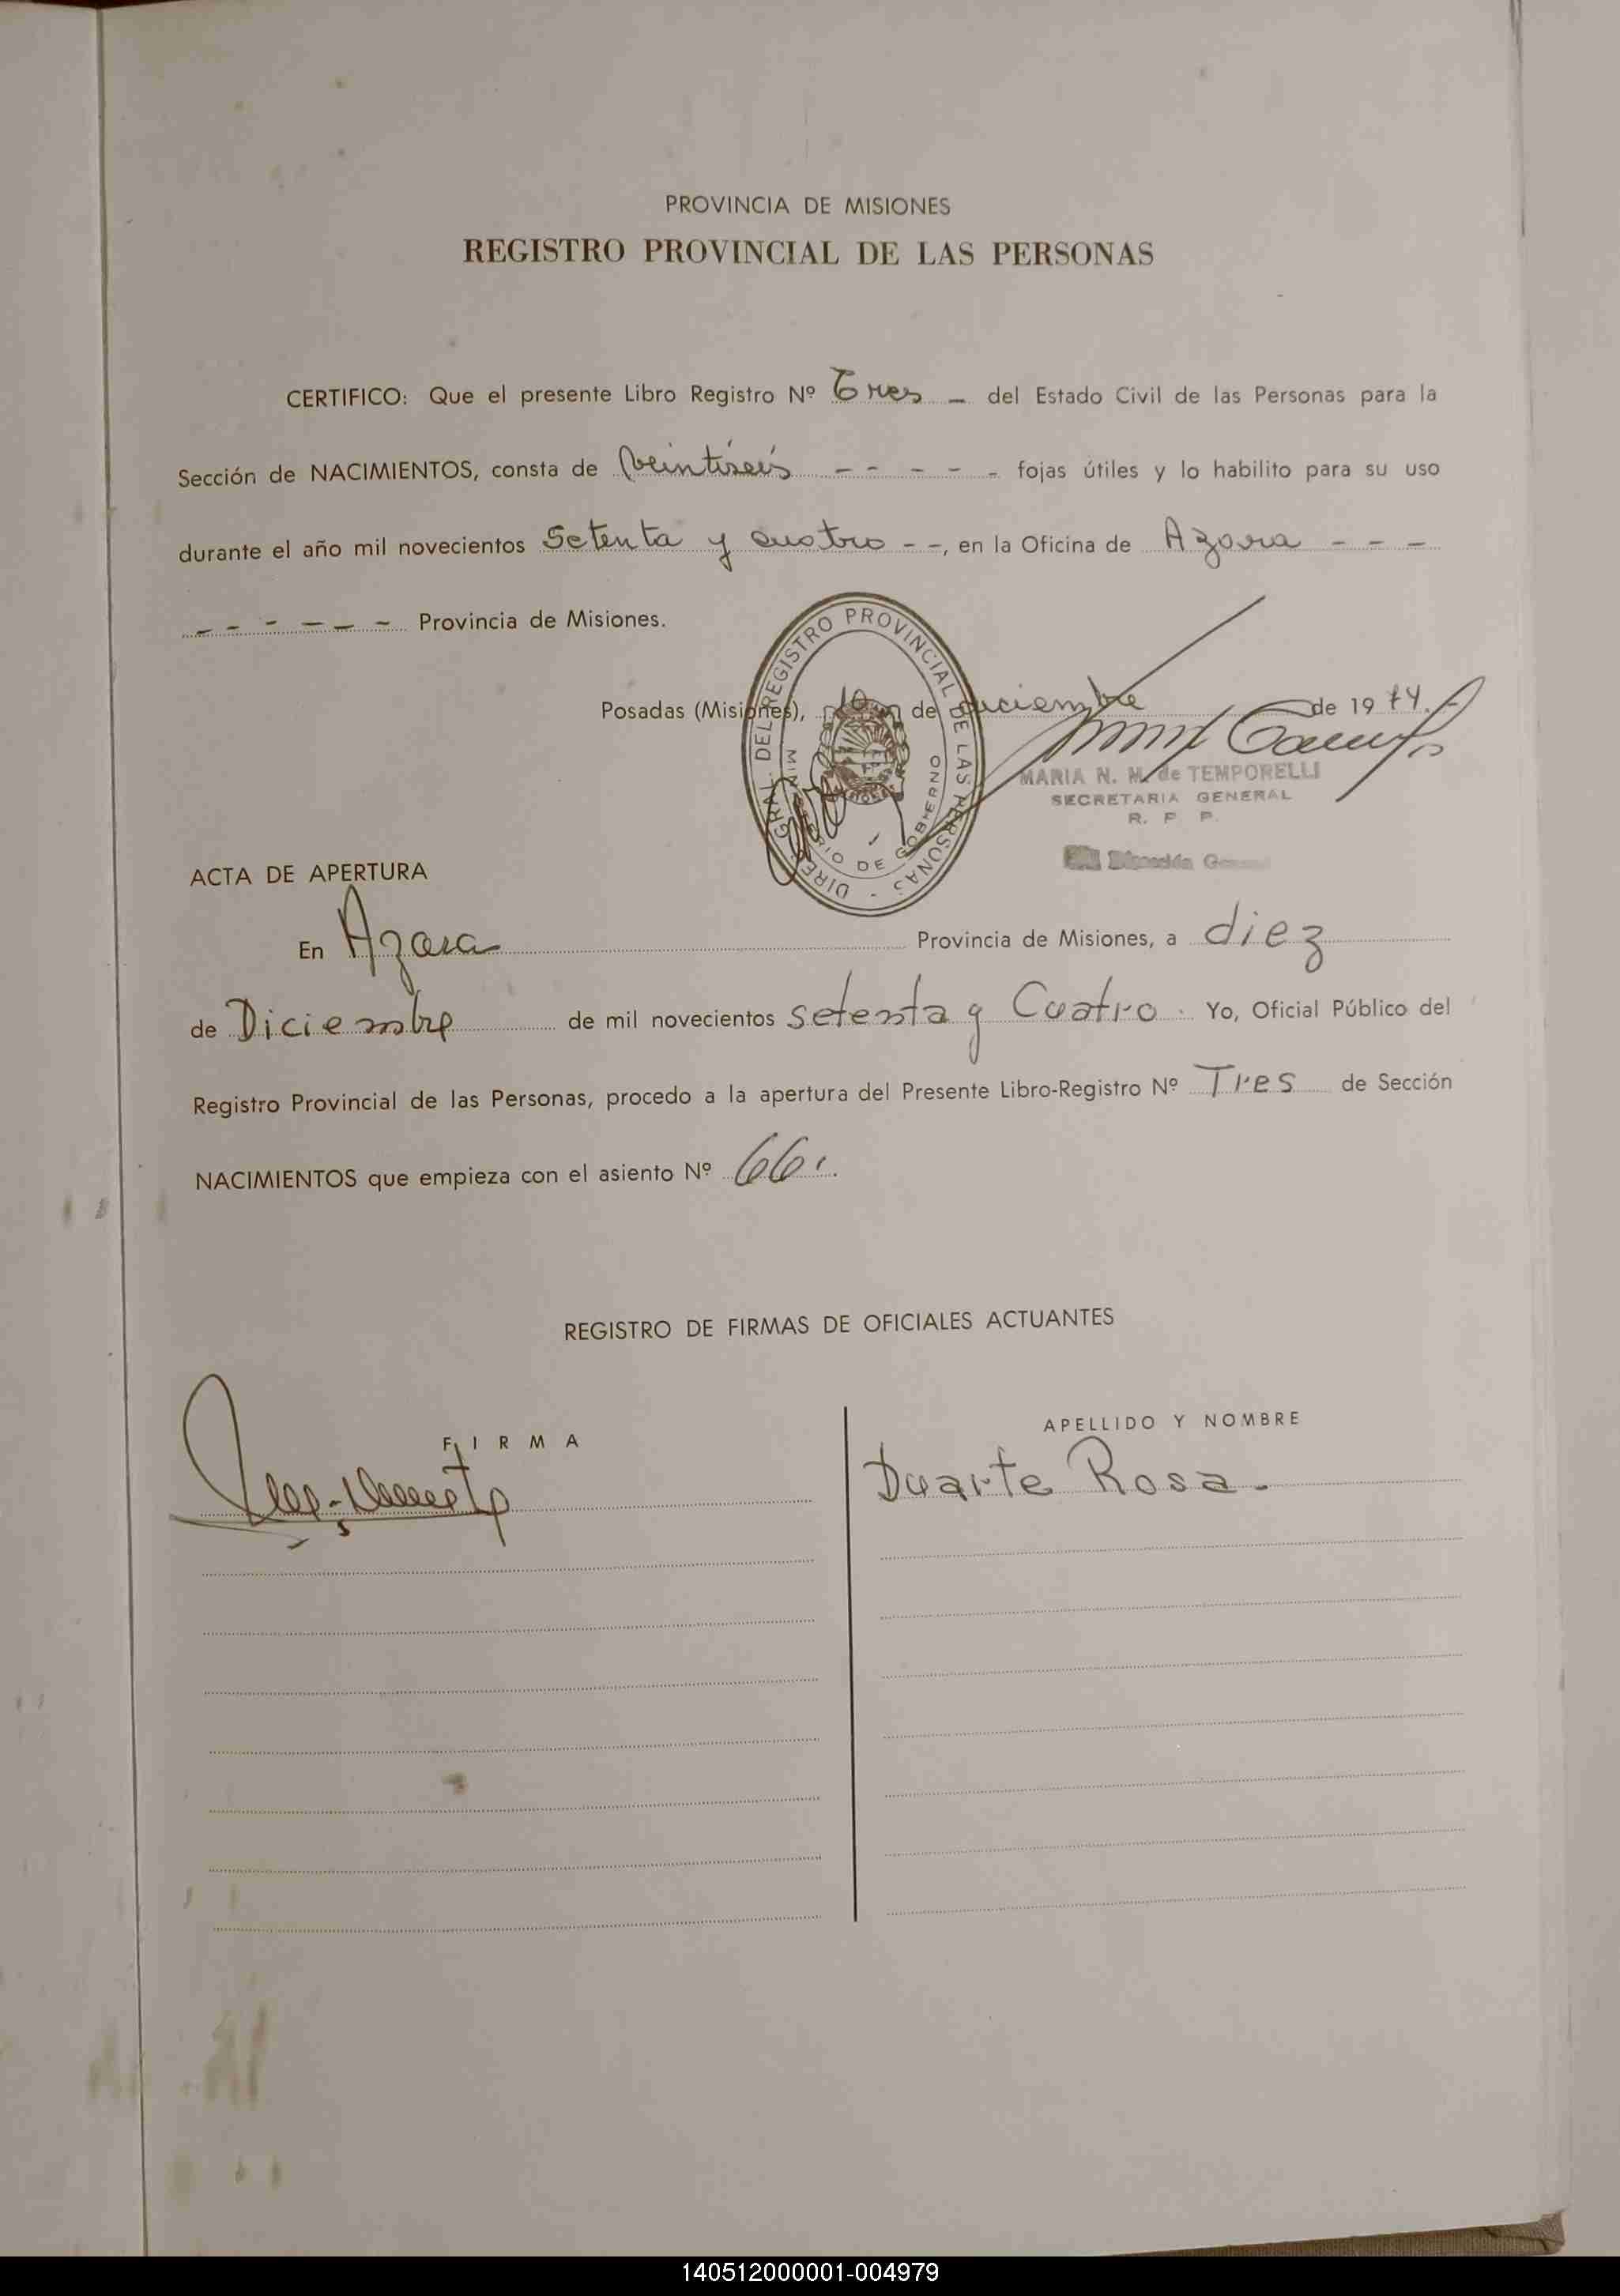 PROVINCIA DE MISIONES
REGISTRO PROVINCIAL DE LAS PERSONAS
CERTIFICO: Que el presente Libro Registro Nº Tres - del Estado Civil de las Personas para la
Sección de NACIMIENTOS, consta de Veintiseis - - - - - fojas útiles y lo habilito para su uso
durante el año mil novecientos Setenta y cuatro - -, en la Oficina de Azara - - -
- - - - - - Provincia de Misiones.
Posadas (Misiones), 10 de diciembre de 1974.-
DIREC. GRAL. DEL REGISTRO PROVINCIAL DE LAS PERSONAS -
MINISTERIO DE GOBIERNO
MARIA N. M. de TEMPORELLI
SECRETARIA GENERAL
R. P. P.
Dirección General
ACTA DE APERTURA
En Azara Provincia de Misiones, a diez
de Diciembre de mil novecientos setenta y Cuatro. Yo, Oficial Público del
Registro Provincial de las Personas, procedo a la apertura del Presente Libro-Registro Nº Tres de Sección
NACIMIENTOS que empieza con el asiento Nº 66.
REGISTRO DE FIRMAS DE OFICIALES ACTUANTES
FIRMA
APELLIDO Y NOMBRE
Duarte Rosa.
140512000001-004979